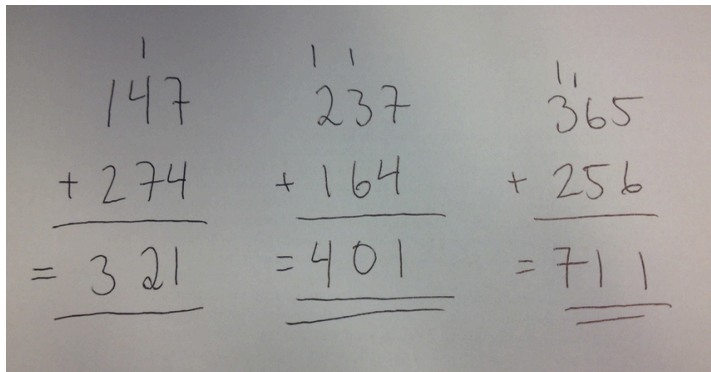 1
147
+ 274
= 321
1 1
237
+ 164
= 401
11
365
+ 256
= 711